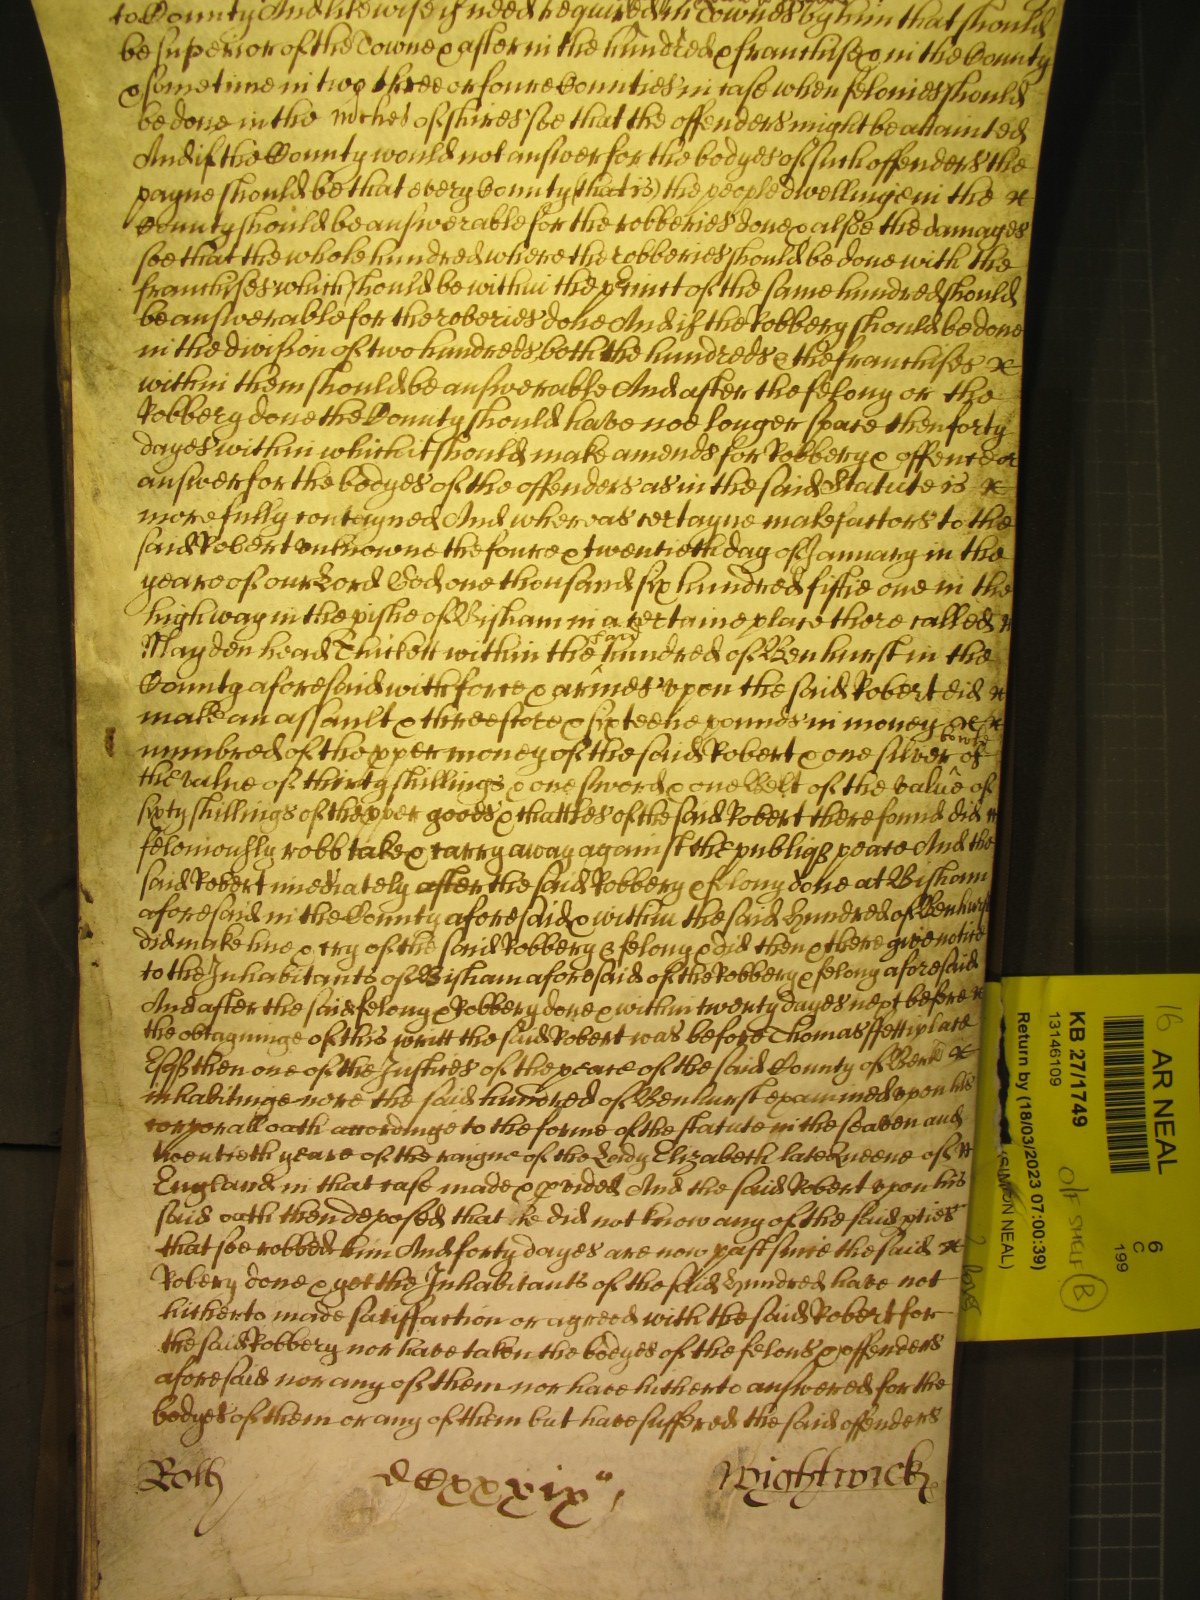 to County And likewise if need required in Townes by him that should
be superior of the Towne & after in the hundred & franchise & in the County
& sometime in two three or foure Counties in case when felonies should
be done in the m̃ches of shires soe that the offenders might be attainted
And if the County would not answer for the bodyes of such offenders the
payne should be that every County (that is) the people dwellinge in the
County should be answerable for the robberies done & alsoe the damages
soe that the whole hundred where the robberies should be done with the
franchises which should be within the p̱cinct of the same hundred should
be answerable for the roberies done And if the Robbery should be done
in the division of two hundreds both the hundreds & the franchises
within them should be answerable And after the felony or the
Robbery done the County should have noe longer space then forty
dayes within which it should make amends for Robbery & offence or
answer for the bodyes of the offenders as in the said Statute is
more fully contayned And whereas certayne malefactors to the
said Robert unknowne the foure & twentieth day of January in the
yeare of our Lord God one thousand six hundred fiftie one in the
high way in the p̱ishe of Bisham in a certaine place there called
Mayden head Thickett within the said hundred of Benhurst in the
County aforesaid with force & armes upon the said Robert did
make an assault & threescore & sixteene pounds in money
numbred of the p̱per money of the said Robert & one silver bowle of
the value of thirty shillings & one sword & one Belt of the value of
sixty shillings of the p̱per goods & chattles of the said Robert there found did
feloniously robb take & carry away against the publiq̱ peace And the
said Robert im̃ediately after the said Robbery & felony done at Bisham
aforesaid in the County aforesaid & within the said hundred of Benhurst
did make hue & cry of the said Robbery & felony & did then & there give notice
to the Inhabitants of Bisham aforesaid of the Robbery & felony aforesaid
And after the said felony & Robbery done & within twenty dayes next before
the obtayninge of this writt the said Robert was before Thomas ffettiplace
Esq̱ then one of the Justices of the peace of the said County of Berk̃
inhabitinge nere the said hundred of Benhurst examined upon his
corporall oath accordinge to the forme of the statute in the seaven and
twentieth yeare of the raigne of the Lady Elizabeth late Queene of
England in that case made & p̱vided And the said Robert upon his
said oath then deposed that he did not know any of the said p̱ties
that soe robbed him And forty dayes are now past since the said
Robery done & yet the Inhabitants of the said hundred have not
hitherto made satisffaction or agreed with the said Robert for
the said Robbery nor have taken the bodyes of the felons & offenders
aforesaid nor any of them nor have hitherto answered for the
bodyes of them or any of them but have suffered the said offenders
Roll
Wightwick
16
AR NEAL
KB 27/1749
13146109
Return by (18/03/2023 07:00:39)
(SIMON NEAL)
6
C
199
O/F SHELF
B